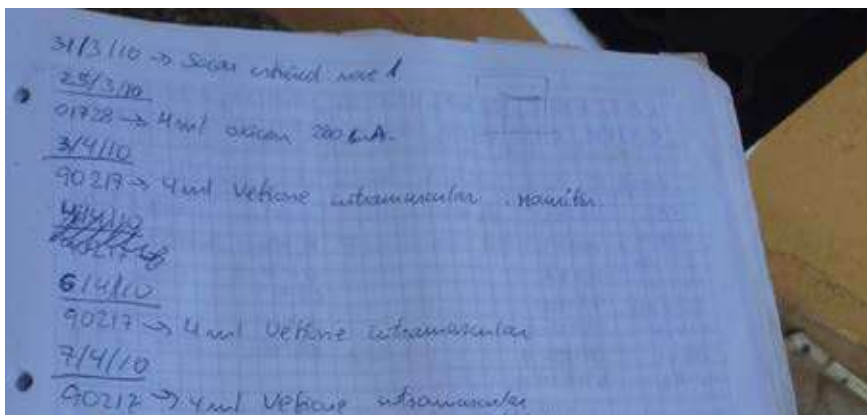 31/3/10 → Sacar nave 1
25/3/10
01728 → 4 ml 200
3/4/10
90217 → 4 ml Vetione intramuscular
6/4/10
90217 → 4 ml Vetione intramuscular
7/4/10
90217 → 4 ml Vetione intramuscular